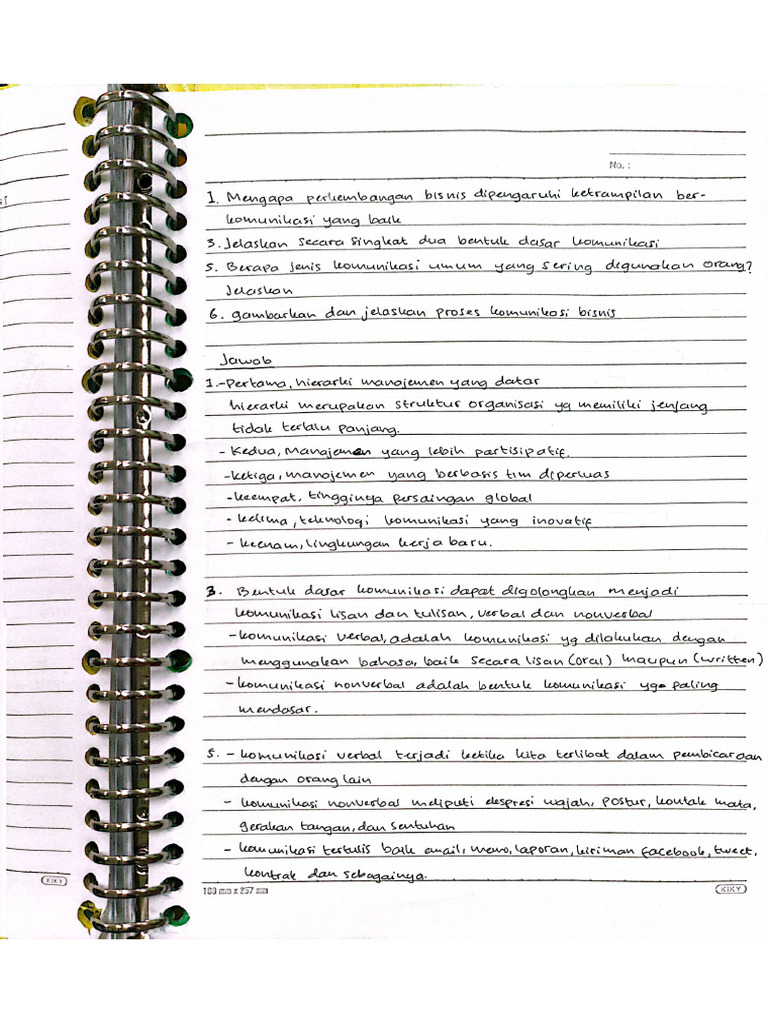 No. :
1. Mengapa perkembangan bisnis dipengaruhi ketrampilan ber-
komunikasi yang baik
3. Jelaskan secara singkat dua bentuk dasar komunikasi
5. Berapa jenis komunikasi umum yang sering digunakan orang?
Jelaskan
6. gambarkan dan jelaskan proses komunikasi bisnis
Jawab
1. - Pertama, hierarki manajemen yang datar
hierarki merupakan struktur organisasi yg memiliki jenjang
tidak terlalu panjang.
- Kedua, Manajemen yang lebih partisipatif.
- ketiga, manajemen yang berbasis tim diperluas
- keempat, tingginya persaingan global
- kelima, teknologi komunikasi yang inovatif
- keenam, lingkungan kerja baru.
3. Bentuk dasar komunikasi dapat digolongkan menjadi
komunikasi lisan dan tulisan, verbal dan nonverbal
- komunikasi verbal, adalah komunikasi yg dilakukan dengan
menggunakan bahasa, baik secara lisan (oral) maupun (written)
- komunikasi nonverbal adalah bentuk komunikasi yg paling
mendasar.
5. - komunikasi verbal terjadi ketika kita terlibat dalam pembicaraan
dengan orang lain
- komunikasi nonverbal meliputi ekspresi wajah, postur, kontak mata,
gerakan tangan, dan sentuhan
- komunikasi tertulis baik email, memo, laporan, kiriman facebook, tweet,
kontrak dan sebagainya.
KIKY
180 mm x 257 mm
KIKY